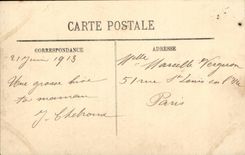 CARTE POSTALE
CORRESPONDANCE
ADRESSE
21 Juin 1913
Une grosse bise
ta maman
J. Chebrou
Mlle Marcelle Vergnon
51 rue St Louis en l'Ile
Paris